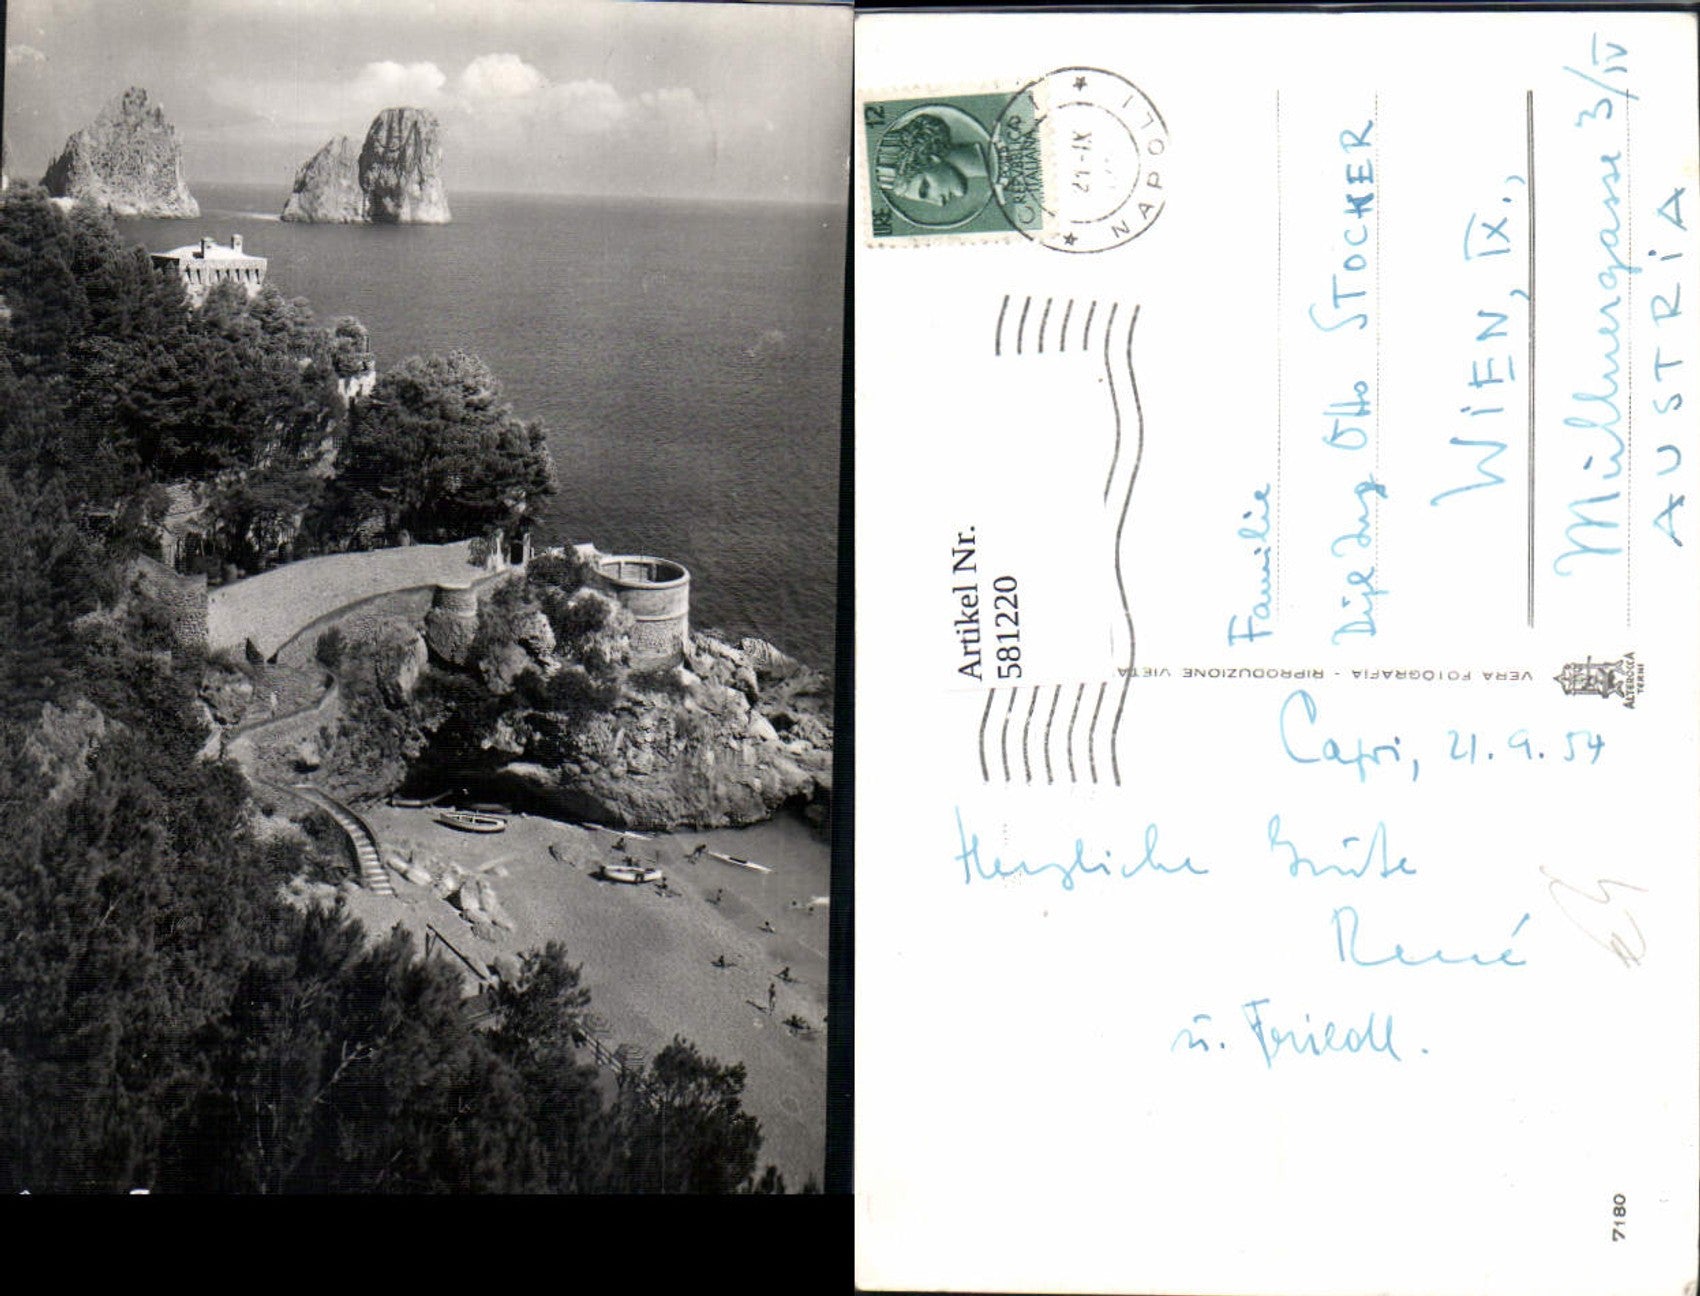 Capri, 21. 9. 54
Herzliche Grüße
René
u. Friedl.
Familie
Dipl Ing Otto STOCKER
WIEN, IX.,
AUSTRIA
LIRE 12
REPVBBLICA
ITALIANA
NAPOLI
21-IX
Artikel Nr.
581220
VERA FOTOGRAFIA - RIPRODUZIONE VIETATA
ALTEROCCA
TERNI
7180